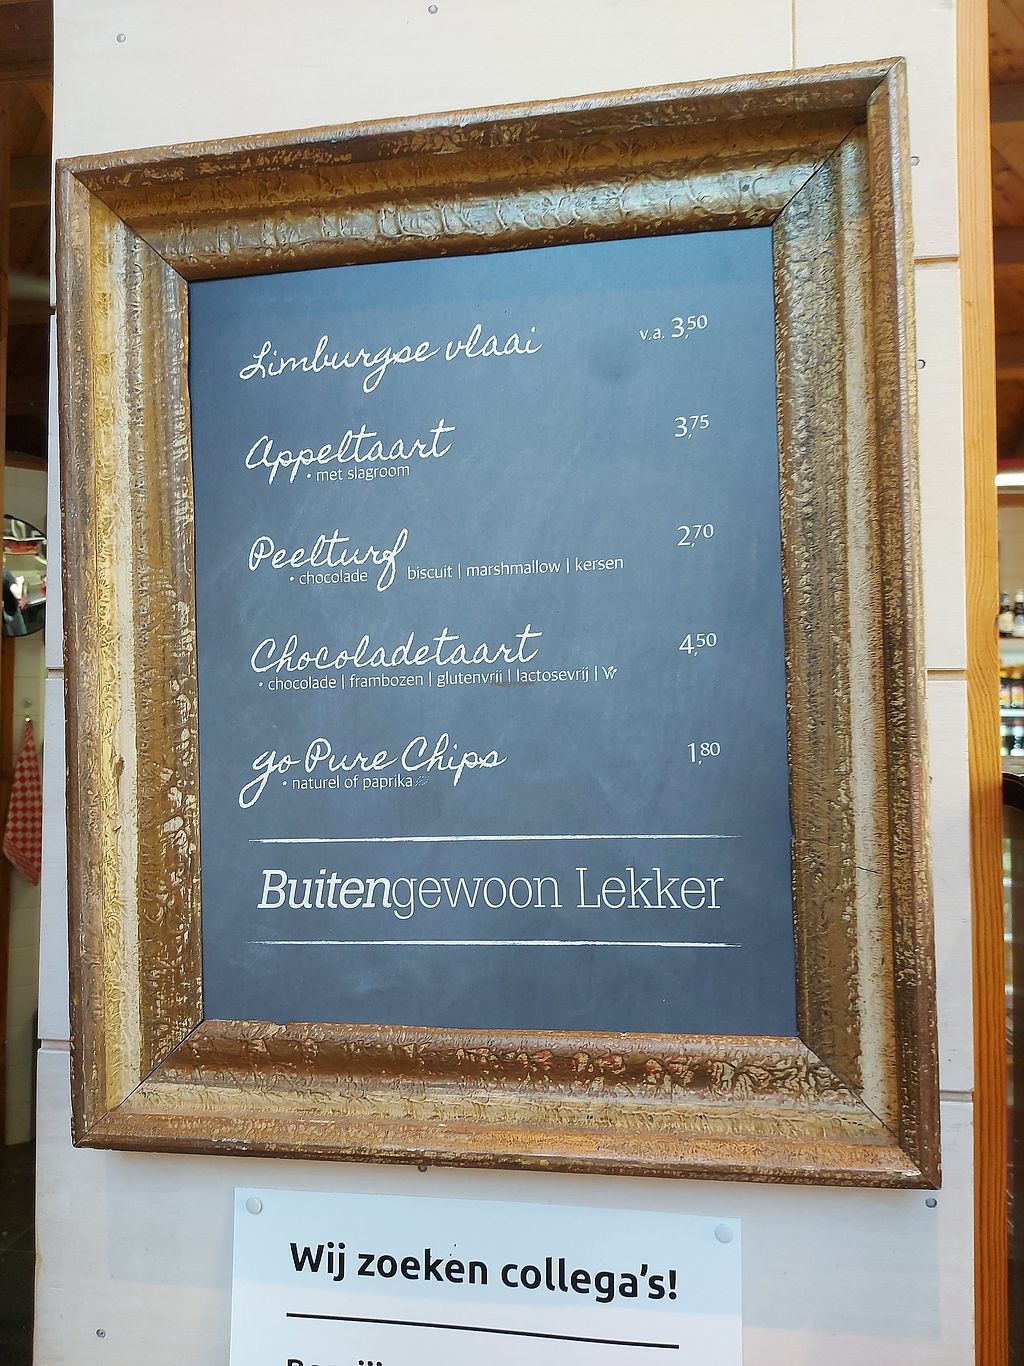 Limburgse vlaai v.a. 3,50
Appeltaart 3,75
• met slagroom
Peelturf 2,70
• chocolade biscuit | marshmallow | kersen
Chocoladetaart 4,50
• chocolade | frambozen | glutenvrij | lactosevrij |
go Pure Chips 1,80
• naturel of paprika
Buitengewoon Lekker
Wij zoeken collega's!